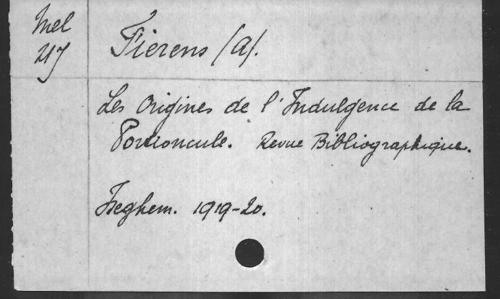 Mel
217
Fierens (A).
Les Origines de l'Indulgence de la
Portioncule. Revue Bibliographique.
Iseghem. 1919-20.